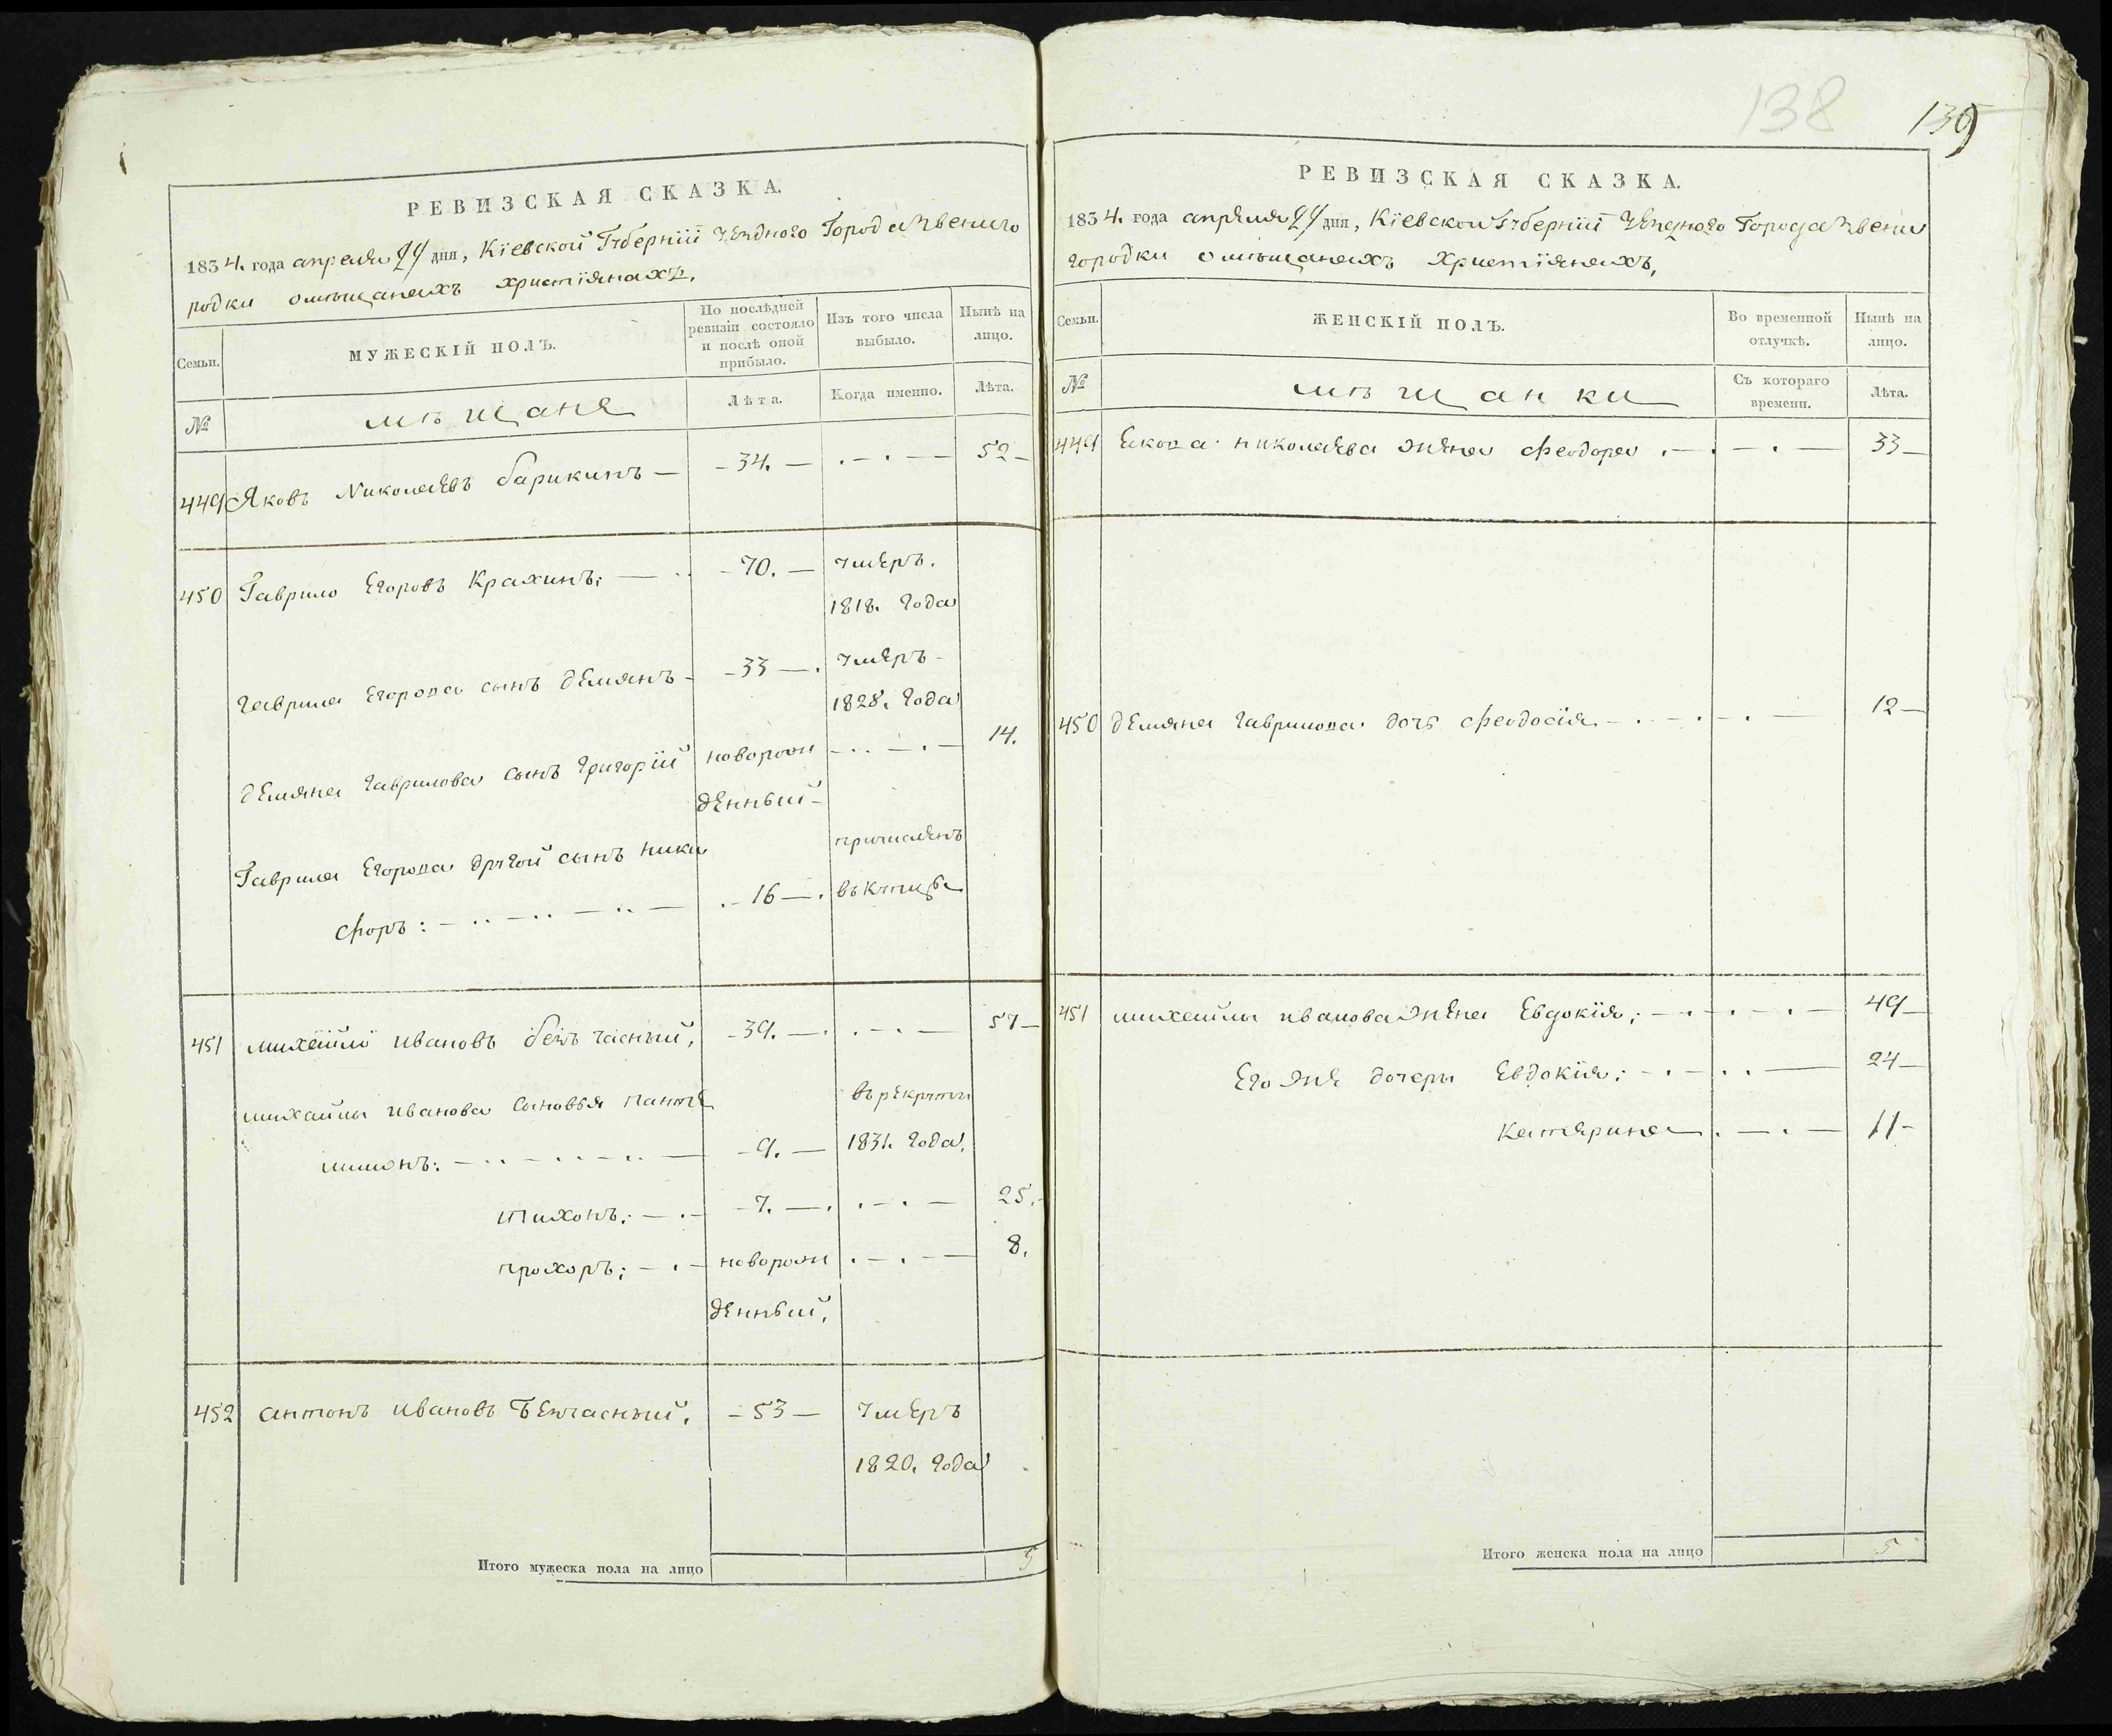 РЕВИЗСКАЯ СКАЗКА.
1834. года апреля 24 дня, Кіевской Губерніи Уезднаго Города Звениго
родки омѣщанахъ христіянахъ.
Семьи.
МУЖЕСКІЙ ПОЛЪ.
По послѣдней
ревизіи состояло
и послѣ оной
прибыло.
Изъ того числа
выбыло.
Нынѣ на
лицо.
№
мѣщане
Лѣта.
Когда именно.
Лѣта.
449 Яковъ Николаевъ барикинъ — -34. — . - . — — 52 -
450 Гаврило Егоровъ Крахинъ: — .. -70. — умеръ.
1818. года
гаврила Егорова сынъ демянъ - -33 — . умеръ -
1828. года
демяна гаврилова сынъ григорій новорож - .. — . — 14.
денный -
Гаврила Егорова другой сынъ ники причисленъ
форъ: — .. — .. — .. — . - 16 — . въ
451 михайло ивановъ безчасный, -39. — . . - . — 57 -
михайлы иванова сыновья панте въ рекруты
лимонъ: — .. - .. - .. — -9. — 1831. года.
тихонъ: — . - -7. — . . - . — 25. -
прохоръ; — . - новорож . — . — 8.
денный,
452 антонъ ивановъ безчасный, -53 — умеръ
1820. года
Итого мужеска пола на лицо 5
138
139
РЕВИЗСКАЯ СКАЗКА.
1834. года апреля 24 дня, Кіевской Губерніи Уезднаго Города Звени
городки омѣщанахъ христіянахъ,
Семьи.
ЖЕНСКІЙ ПОЛЪ.
Во временной
отлучкѣ.
Нынѣ на
лицо.
№
мѣщанки
Съ котораго
времени.
Лѣта.
449 Якова николаева жена феодора . - . — . — 33 -
450 демяна гаврилова дочь феодосія - . - . - . — 12 -
451 михайлы иванова жена Евдокія; - . - . - . — 49 -
Его же дочеры Евдокія; - . - . . — 24 -
Катерина . — . — 11 -
Итого женска пола на лицо 5